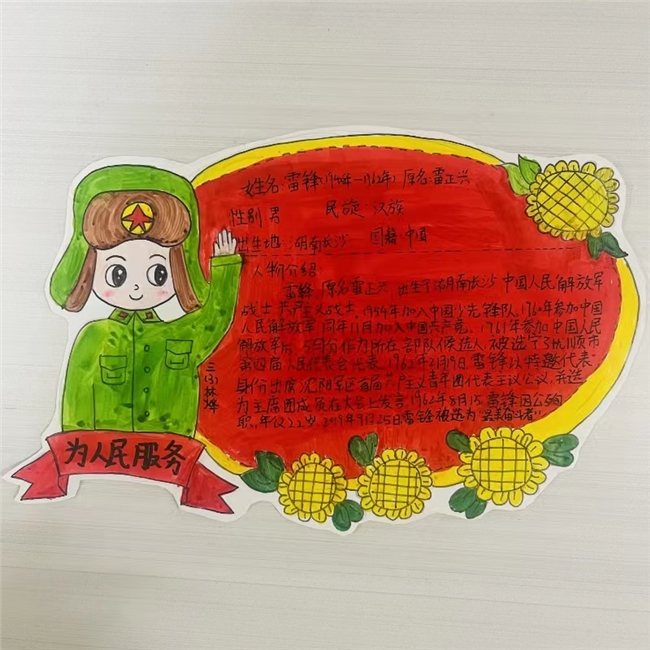 姓名:雷锋(1940年—1962年) 厚名:雷正兴
性别 男 民族:汉族
出生地:湖南长沙 国籍:中国
人物介绍
雷锋,厚名雷正兴 出生于湖南长沙 中国人民解放军
战士 共产主义战士. 1954年加入中国少先锋队, 1760年参加中国
人民解放军 同年11月加入中国共产党. 1761年参加中国人民
解放军后 部队候选人 被选了 顺市
第四届人民代表会代表. 1962年2月19日雷锋以特邀代表
身份出席沈阳军区首届 主义青年团代表主议公议, 并选
为主席团成员在大会上发言, 1962年8月15 雷锋因公殉
职. 年仅22岁. 2019年9月25日雷锋被选为"最美奋斗者".
三(3)林烨
为人民服务